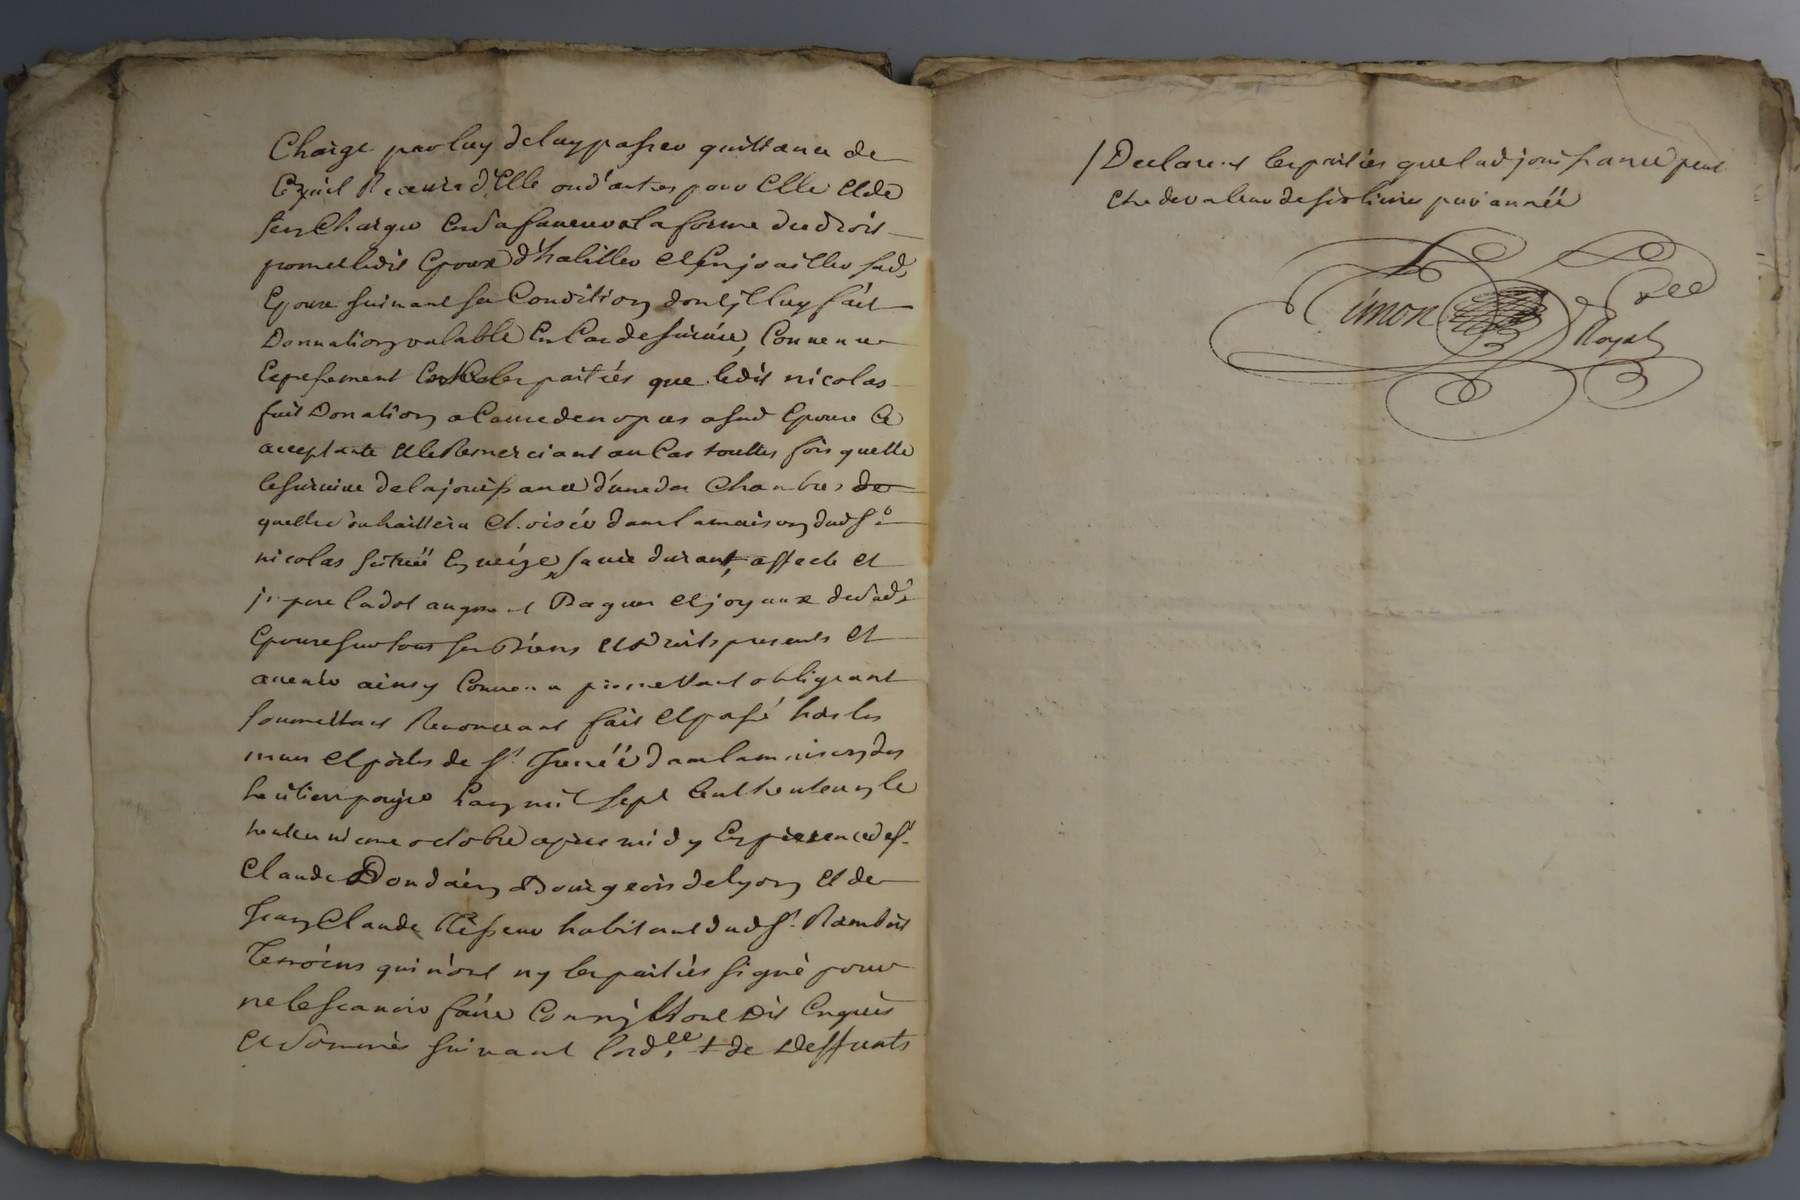 Charge par luy de luy passer quittance de
Ce quil Recevra d'Elle ou d'autres pour Elle Et de
s'en Charger En sa faveur a la forme du droit
promet ledit Epoux d'habiller Et Enjoailler sad.
Epouse suivant sa Condition dont jl luy fait
Donnation valable En Cas de survie, Convenu
Expressement Entre les parties que ledit nicolas
fait Donation a Cause de nopces a sad Epouse Ce
acceptante Et le Remerciant au Cas touttes fois quelle
le survive de la jouissance d'une des Chambres
quelle souhaittera Choisir dans la maison dud Sr
nicolas scituée En sa vie durant, affecte et
la dot augment Bagues Et joyaux de sad.
Epouse sur tous ses Biens Et Droits presents Et
avenir ainsy Convenu promettant obligeant
soumettant Renonceant fait Et passé hors les
murs Et portes de St. Jrenéé dans la maison des
heritiers L'an mil sept Cent trente un le
trente unieme octobre apres midy En presence de Sr.
Claude Dondain Bourgeois de lyon Et de
Jean Claude habitant dud St. Rambert
Temoins qui n'ont ny les parties signé pour
ne le scavoir faire Comm'jls ont Dit Enquis
Et sommés suivant l'ord.ce + de Deffunts
/ Declarent les parties que lad jouissance peut
Etre de valeur de six livres par année
Simon
Royal